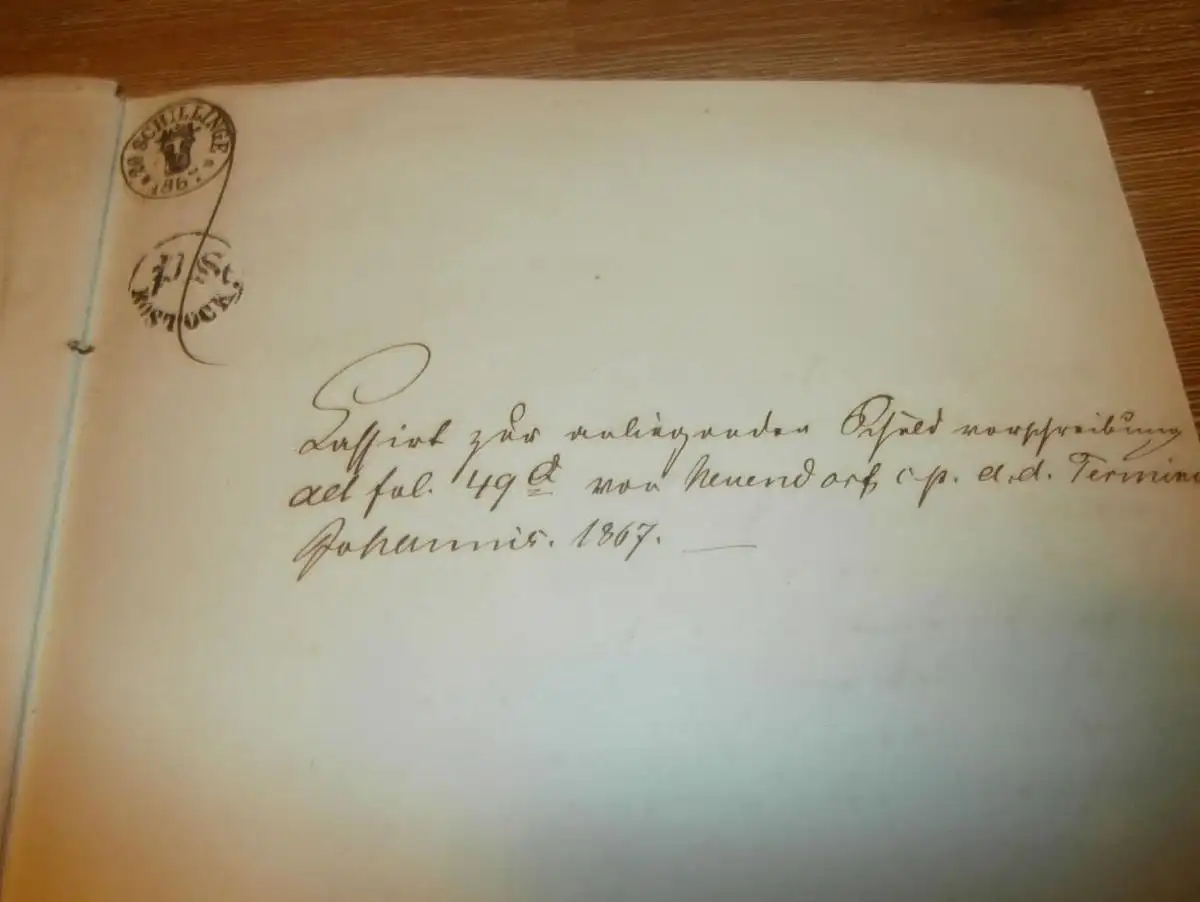 20 SCHILLINGE
1867
P. St.
ROSTOCK
Cassirt zur anliegenden Schuldverschreibung
ad fol. 49 d von Neuendorf c. p. d. d. Termino
Johannis. 1867.